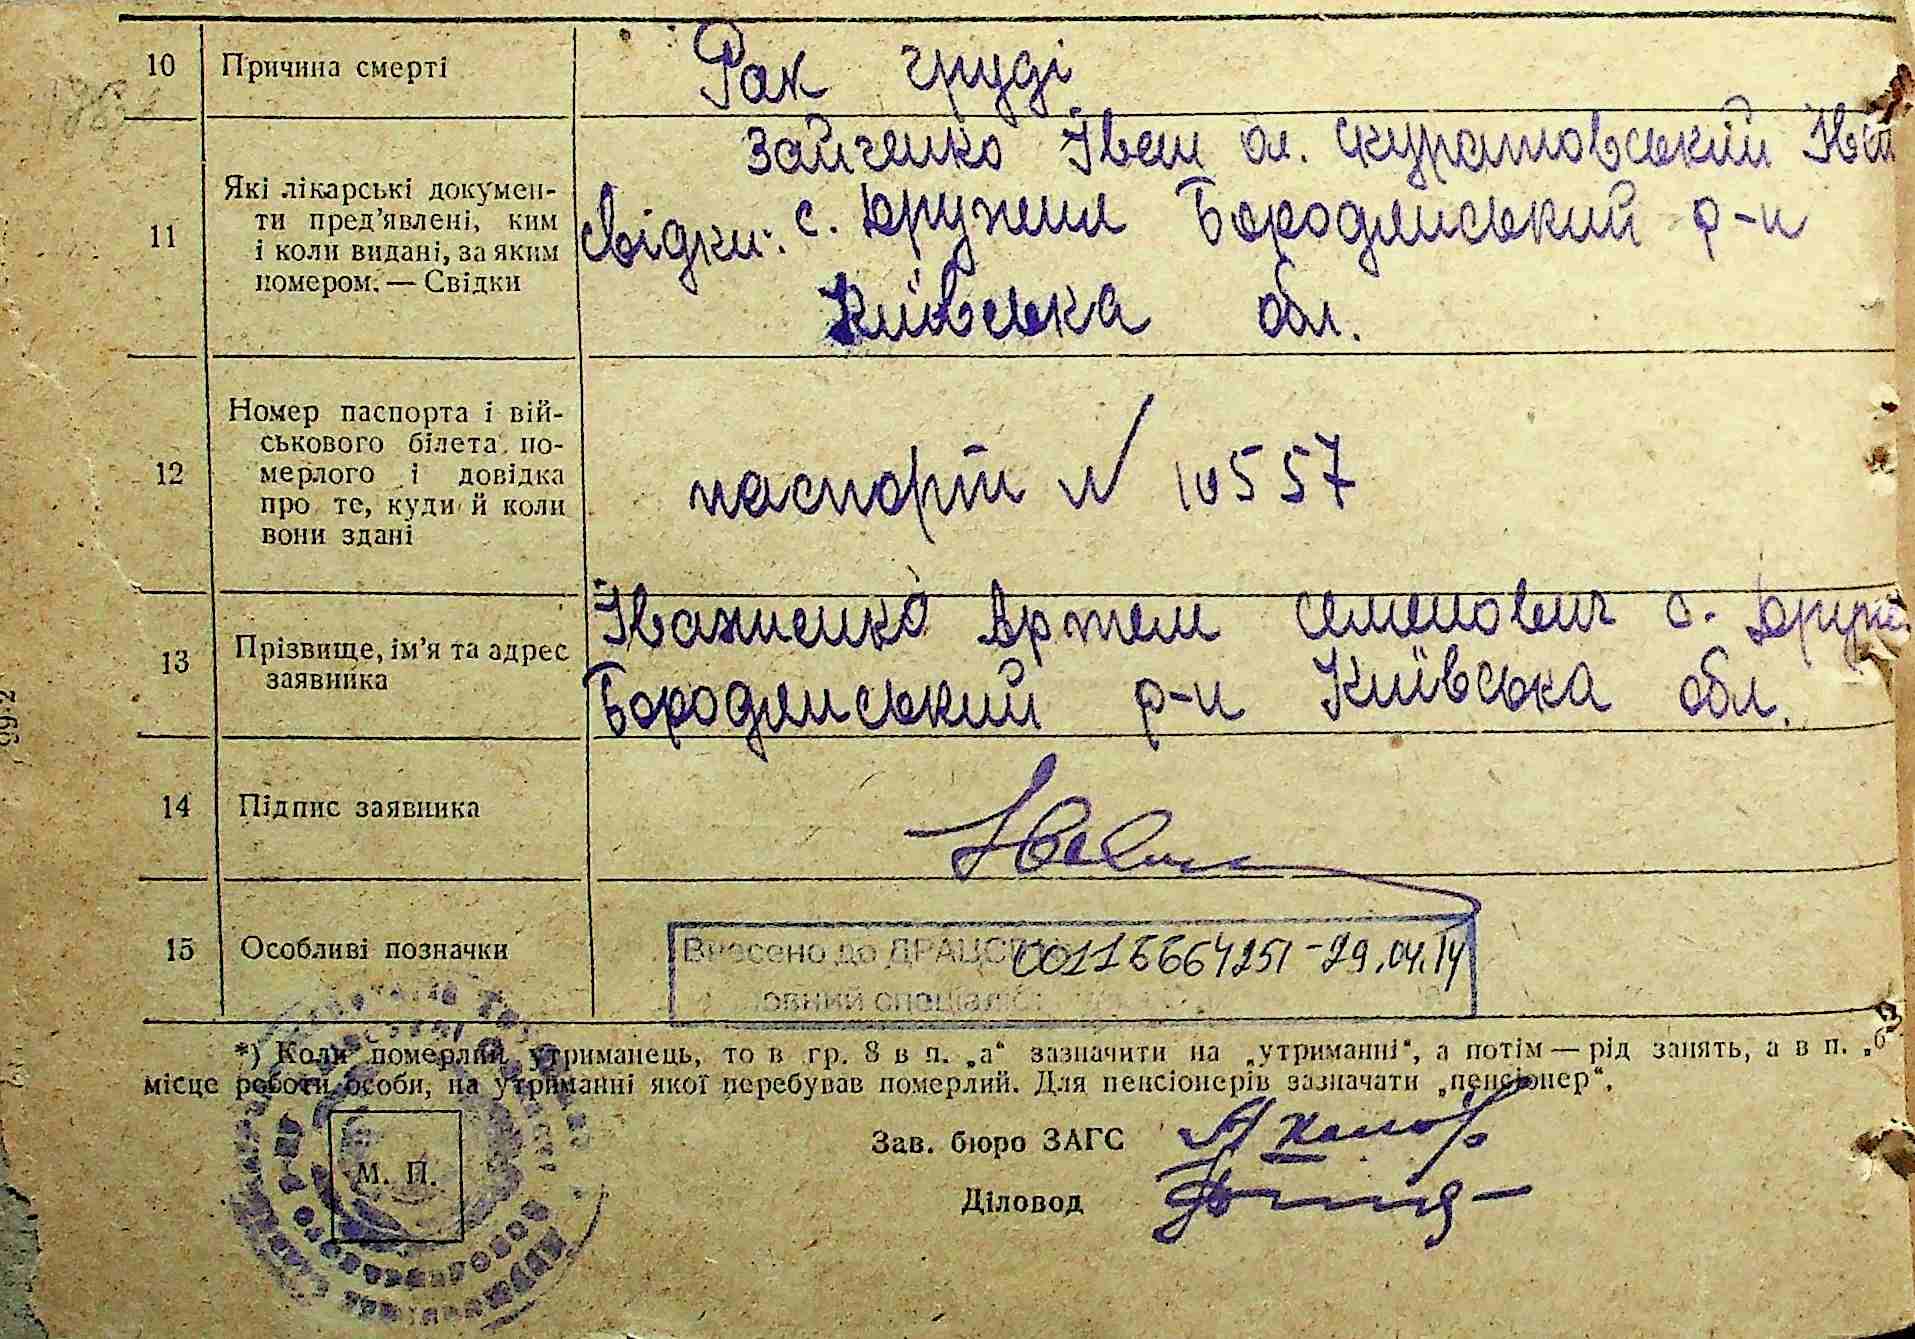 10 Причина смерті Рак груді
11 Які лікарські документи пред'явлені, ким і коли видані, за яким номером. — Свідки
Зайченко Іван ол. Скуратовський
свідки: с. Дружня Бородянський р-н
Київська обл.
12 Номер паспорта і військового білета померлого і довідка про те, куди й коли вони здані
паспорт N 10557
13 Прізвище, ім'я та адрес заявника
Іваненко Артем Семенович с.
Бородянський р-н Київська обл.
14 Підпис заявника
15 Особливі позначки
Внесено до 29.04.14
*) Коли померлий утриманець, то в гр. 8 в п. „а“ зазначити на „утриманні“, а потім — рід занять, а в п. „б
місце роботи особи, на утриманні якої перебував померлий. Для пенсіонерів зазначати „пенсіонер“.
Зав. бюро ЗАГС
М. П.
Діловод